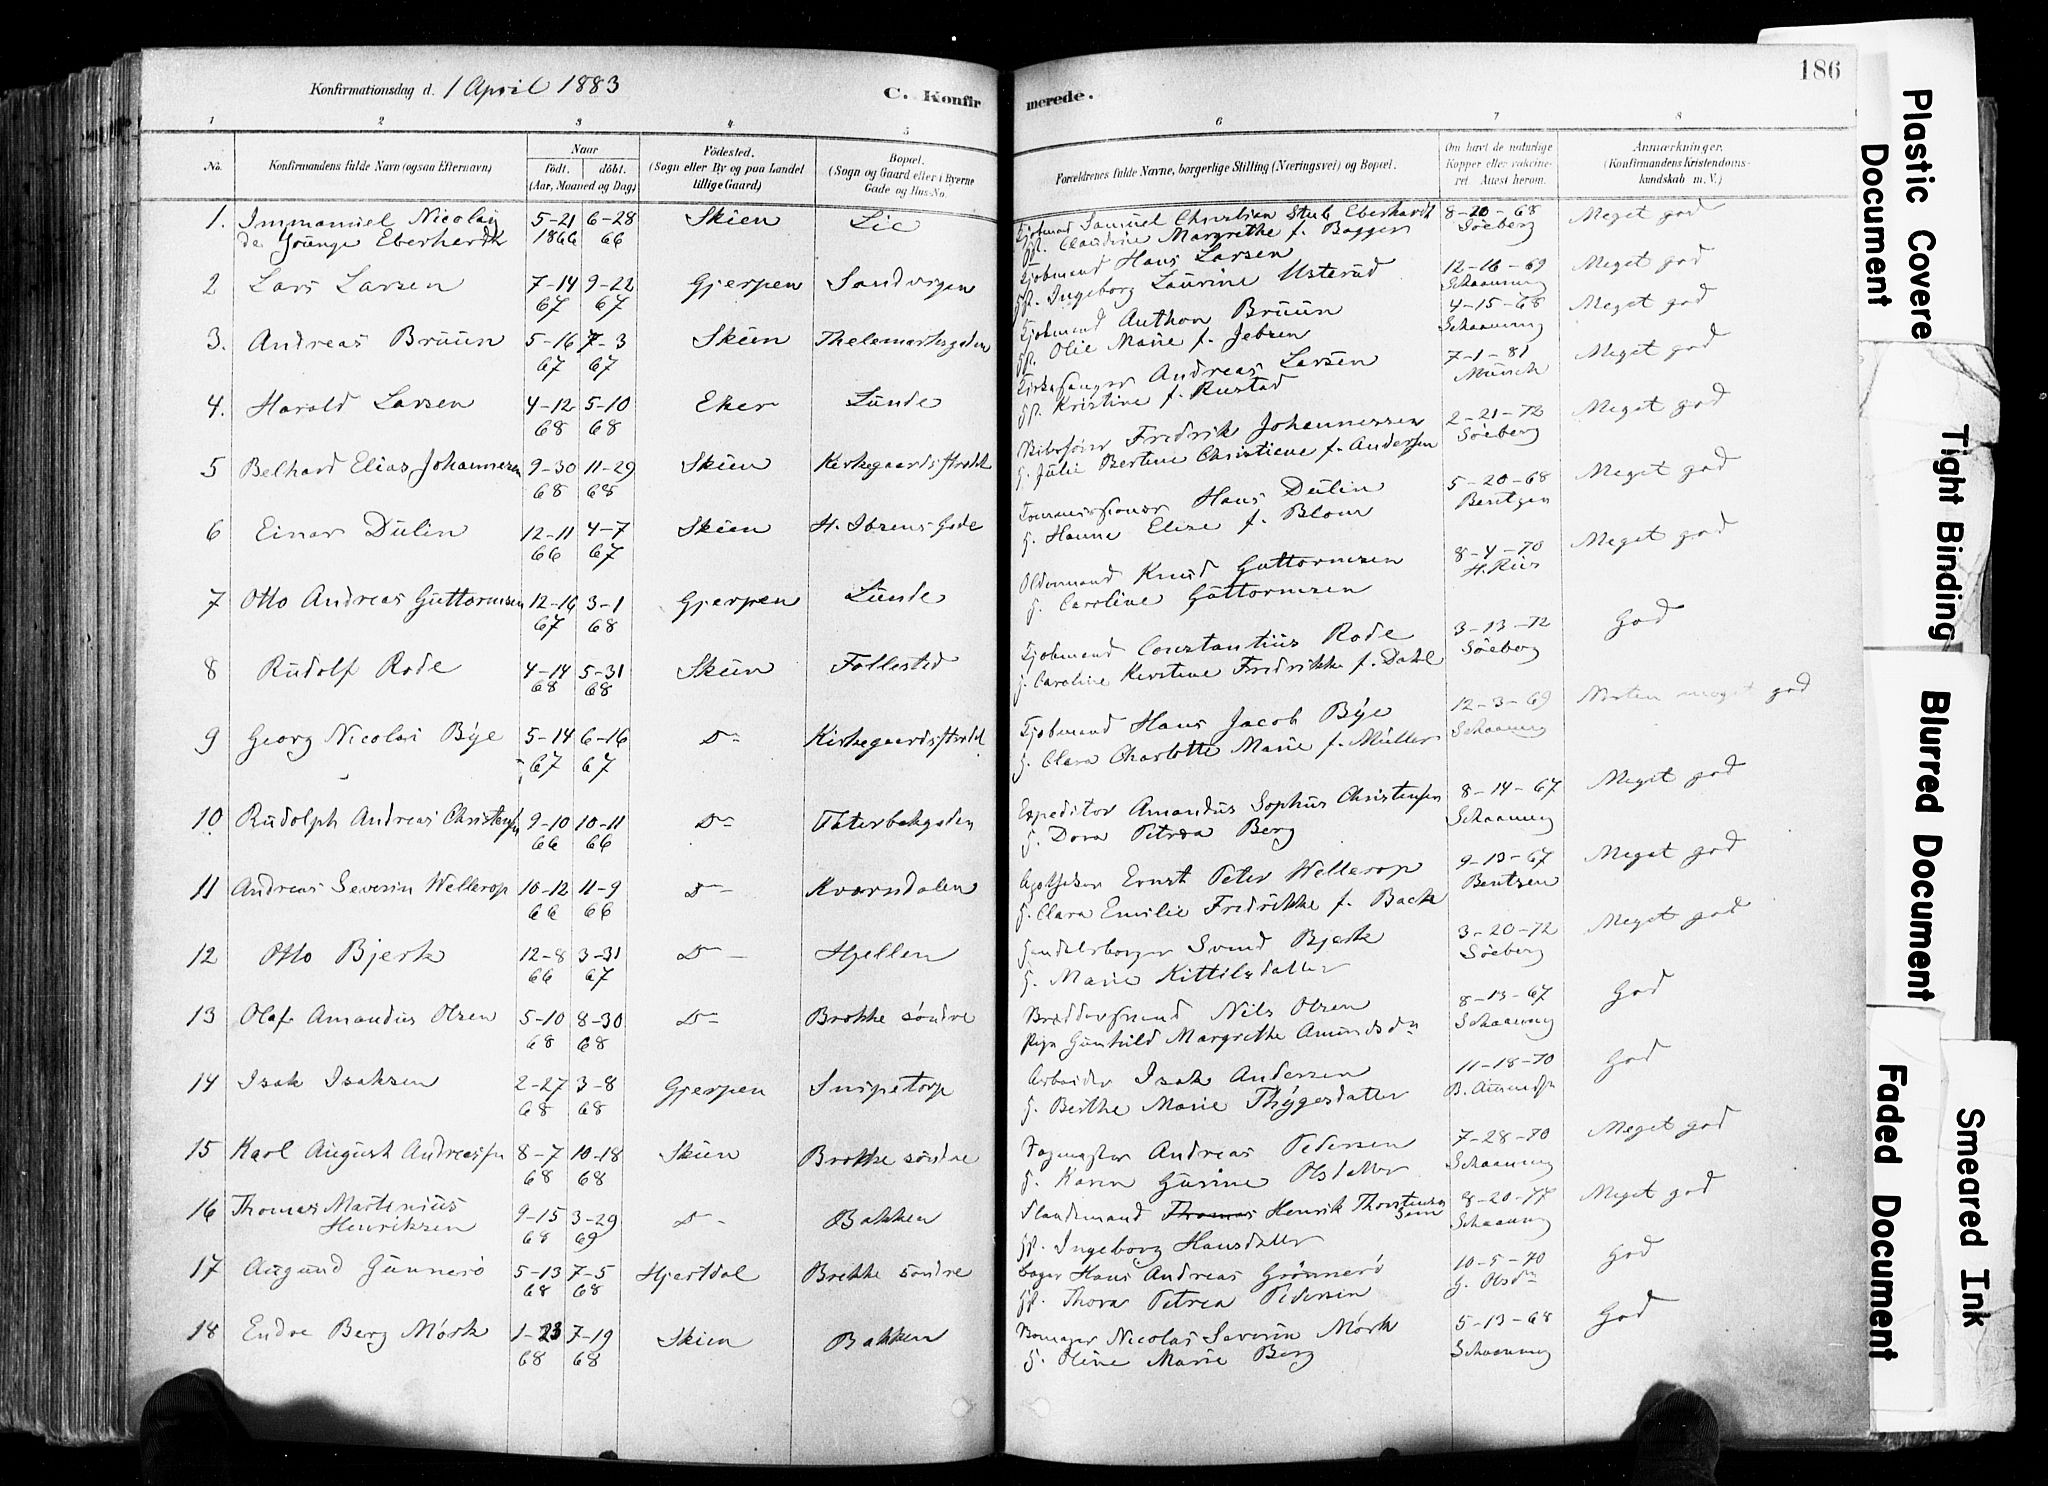 Konfirmationsdag d. 1 April 1883
C. Konfir
merede.
186
1 2 3 4 5 6 7 8
No. Konfirmandens fulde Navn (ogsaa Efternavn) Naar født. døbt. (Aar, Maaned og Dag) Fødested. (Sogn eller By og paa Landet tillige Gaard) Bopæl. (Sogn og Gaard eller i Byerne Gade og Hus-No. Forældrenes fulde Navne, borgerlige Stilling (Næringsvei) og Bopæl. Om havt de naturlige Kopper eller vakcineret. Attest herom. Anmærkninger. (Konfirmandens Kristendomskundskab m. V.)
1. Immanuel Nicolai 5-21 6-28 Skien Lie Kjøbmand Samuel Christian Stub Eberhardt 8-20-68 Meget god
de Younge Eberhardt 1866 66 Claudine Margrethe f. Bagger Søeberg
2 Lars Larsen 7-14 9-22 Gjerpen Sandvigen Kjøbmand Hans Larsen 12-16-69 Meget god
67 67 Ingeborg Laurine Usterud Schaaning
3. Andreas Bruun 5-16 7-3 Skien Kjøbmand Anthon Bruun 4-15-68 Meget god
67 67 Olie Marie f. Jebsen Schaaning
4. Harald Larsen 4-12 5-10 Eker Lunde Kirkesanger Andreas Larsen 7-1-81 Meget god
68 68 Kristine f. Rustad Münch
5 Belhard Elias Johannesen 9-30 11-29 Skien Fredrik Johannessen 2-21-72 Meget god
68 68 H. Julie Bertine Christiene f. Andersen Søeberg
6 Einar Dulin 12-11 4-7 Skien H. Ibsens Gade Hans Dulin 5-20-68 Meget god
66 67 H. Hanne Elise f. Blom Bentzen
7 Otto Andreas Guttormsen 12-16 3-1 Gjerpen Lunde Oldermand Knud Guttormsen 8-4-70 Meget god
67 68 H. Caroline Guttormsen
8 Rudolf Rode 4-14 5-31 Skien Follestad Kjøbmand Constantius Rode 3-13-72 God
68 68 H. Caroline Kerstine Fredrikke f. Dahl Søeberg
9 Georg Nicolai Bye 5-14 6-16 Do Kjøbmand Hans Jacob Bye 12-3-69 Næsten meget god
67 67 H. Clara Charlotte Marie f. Müller Schaaning
10. Rudolph Andreas Christensen 9-10 10-11 Do Expeditør Amandus Sophus Christensen 8-14-67 Meget god
66 66 H. Dora Petrea Berg Schaaning
11 Andreas Severin Wellerop 10-12 11-9 Do Kværndalen Apotheker Ernst Peter Wellerop 9-13-67 Meget god
66 66 H. Clara Emilie Fredrikke f. Back Bentzen
12 Otto Bjerk 12-8 3-31 Do Hjellen Handelsborger Svend Bjerk 3-20-72 Meget god
66 67 H. Marie Kittilsdatter Søeberg
13 Olaf Amandus Olsen 5-10 8-30 Do Brekke søndre Nils Olsen 8-13-67 God
68 68 Pige Gunhild Margrethe Schaaning
14 Isak Isaksen 2-27 3-8 Gjerpen Snipetorp Arbeider Isak Andersen 11-18-70 God
68 68 H. Berthe Marie Thygesdatter
15 Karl August Andreassen 8-7 10-18 Skien Brekke søndre Andreas Pedersen 7-28-70 Meget god
68 68 H. Karen Gurine Olsdatter Schaaning
16 Thomas Martinius 9-15 3-29 Do Bakken Thomas Henrik Thorstensen Meget god
Henriksen 68 69 Ingeborg Hansdatter Schaaning
17 Augund Gunnerö 5-13 7-5 Hjertdal Brekke søndre Hans Andreas Grønnerö 10-5-70 God
68 68 Thora Petrea Pedersen
18 Endre Berg Mørk 1-23 7-19 Skien Bakken Nicolai Severin Mørk 5-13-68 God
68 68 H. Oline Marie Berg Schaaning
Plastic Covere Document
Tight Binding
Blurred Document
Faded Document
Smeared Ink